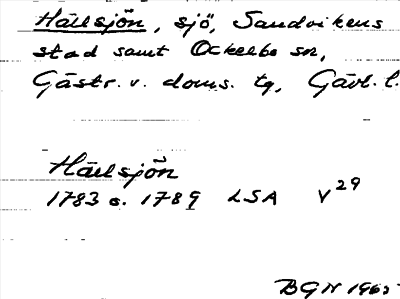 Hällsjön, sjö, Sandvikens
stad samt Ockelbo sn,
Gästr. v. doms. tg, Gävl. l.
Hällsjön
1783 o. 1789 LSA V29
BGN 1965